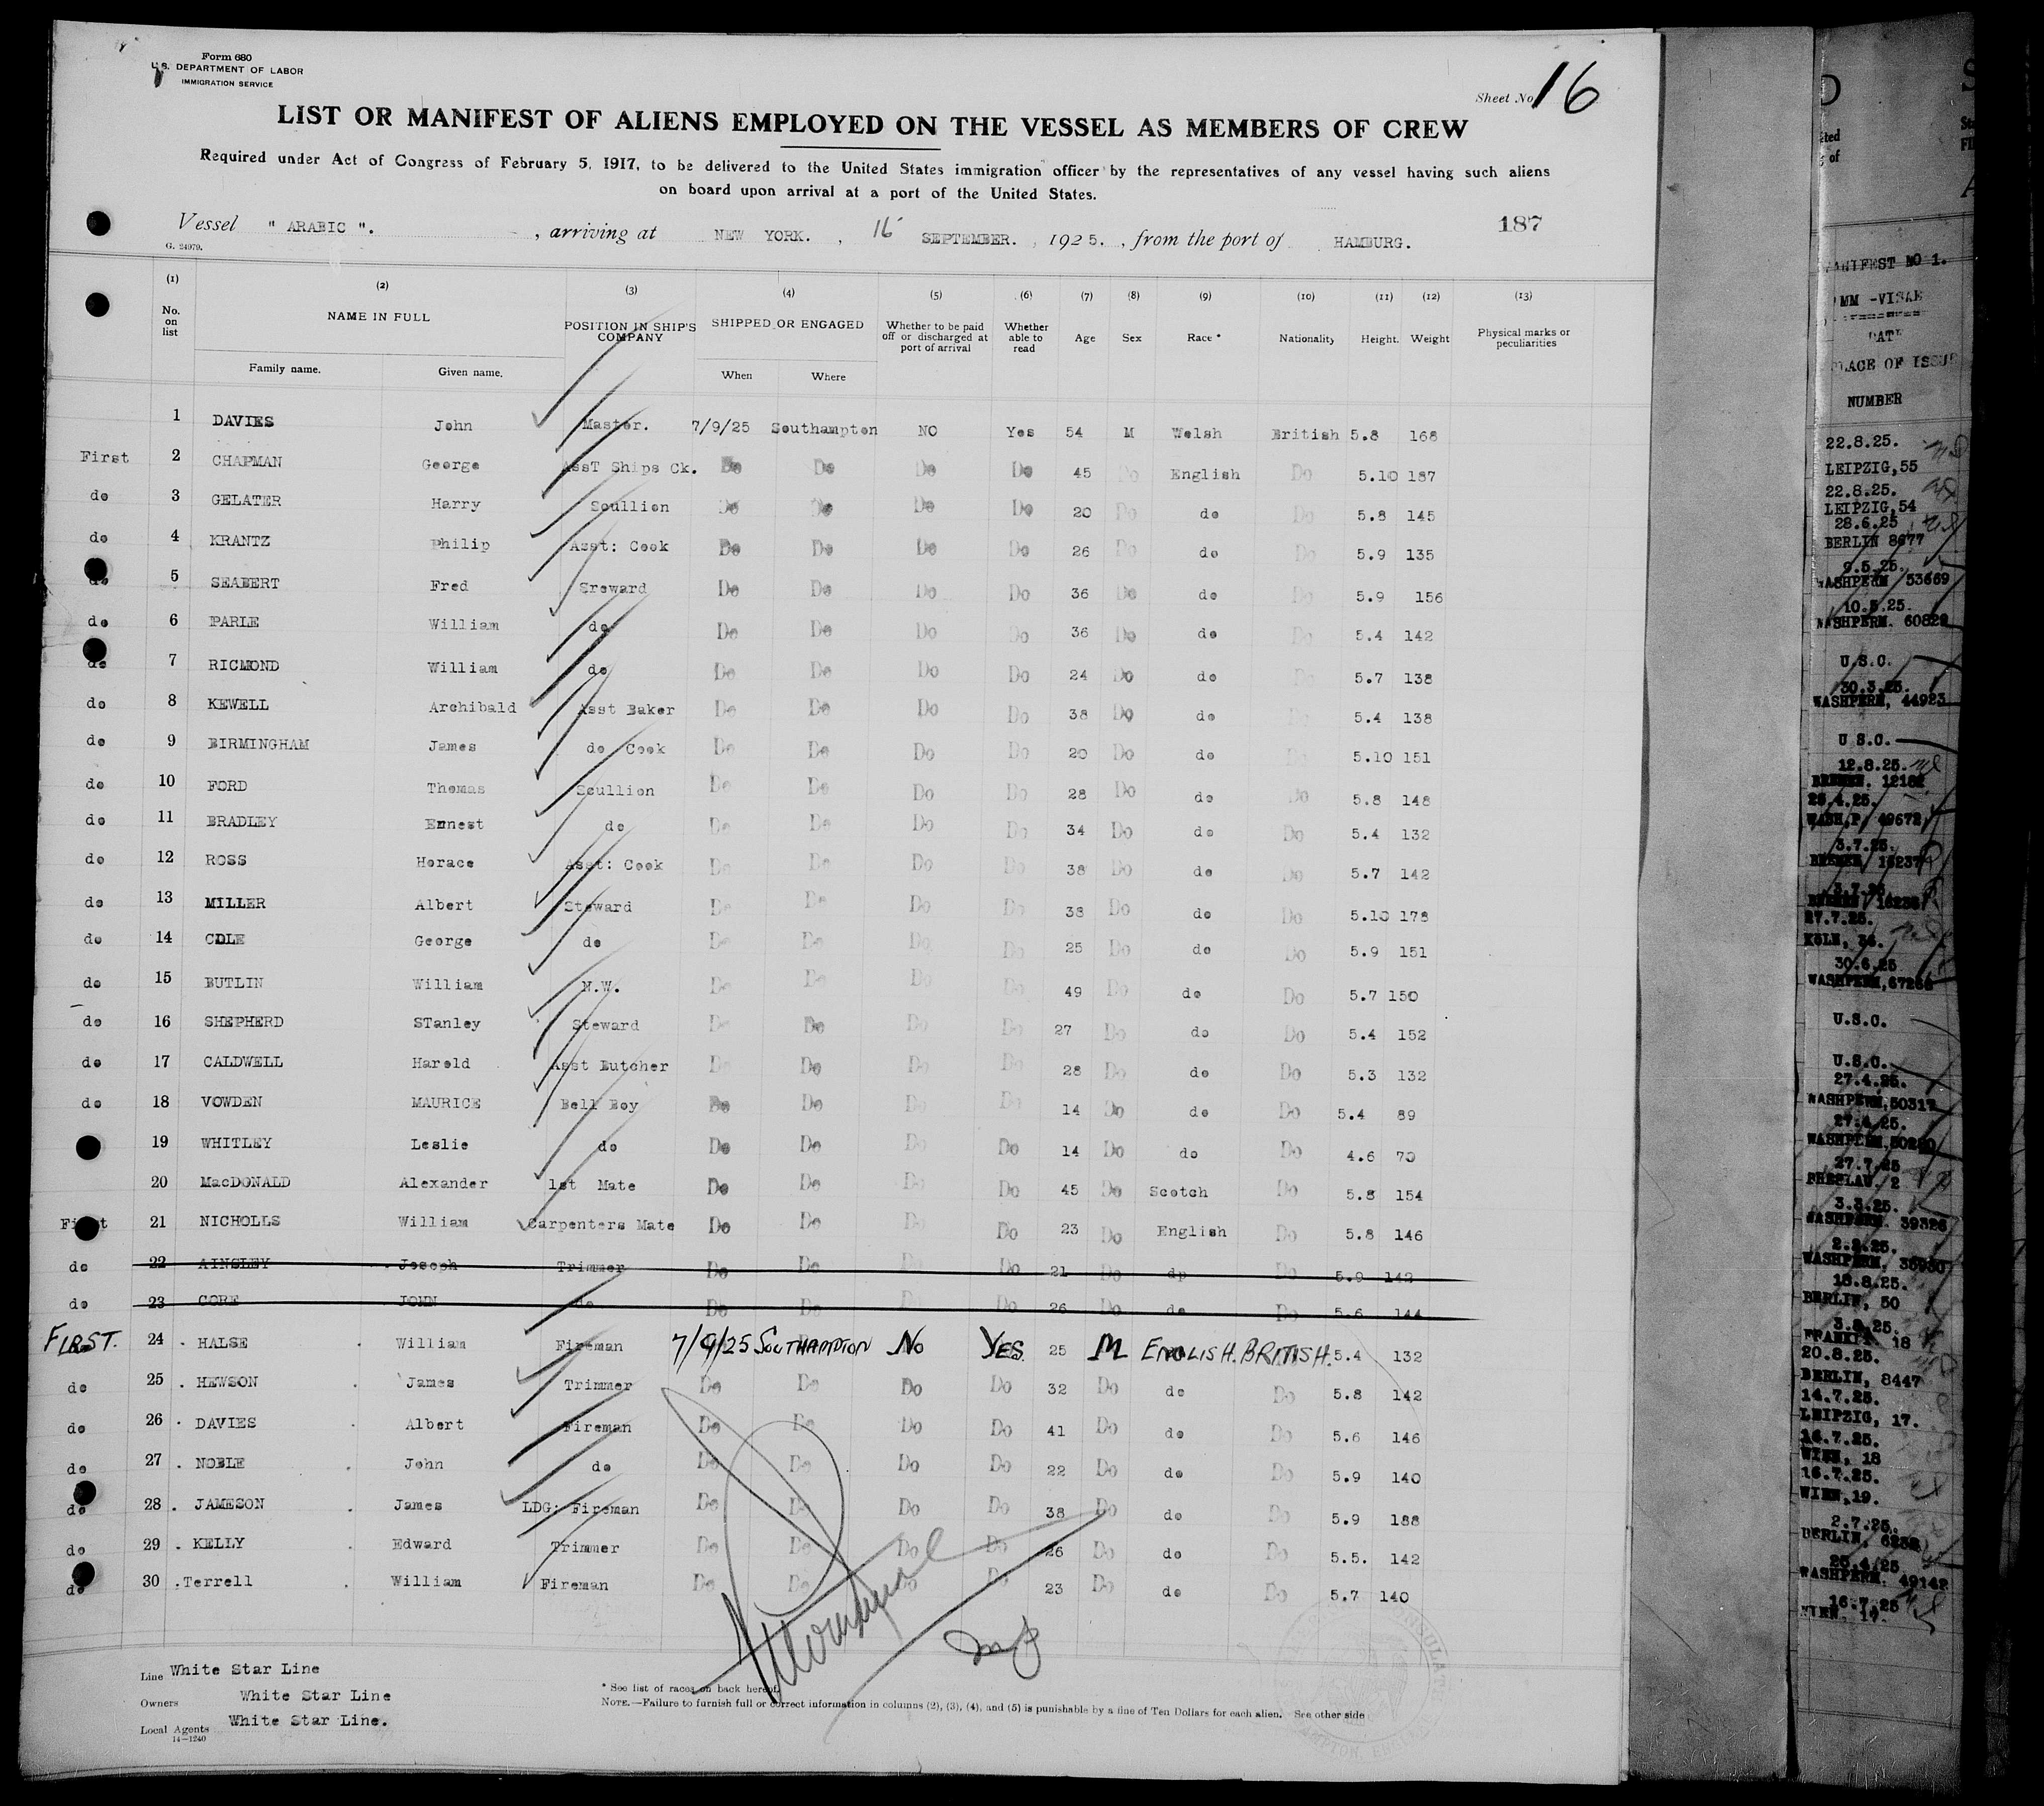 Form 680
U.S. DEPARTMENT OF LABOR
IMMIGRATION SERVICE
Sheet No 16
LIST OR MANIFEST OF ALIENS EMPLOYED ON THE VESSEL AS MEMBERS OF CREW
Required under Act of Congress of February 5, 1917, to be delivered to the United States immigration officer by the representatives of any vessel having such aliens
on board upon arrival at a port of the United States.
187
Vessel " ARABIC ". , arriving at NEW YORK. , 16 SEPTEMBER. , 1925. , from the port of HAMBURG.
G. 24979.
(1) (2) (3) (4) (5) (6) (7) (8) (9) (10) (11) (12) (13)
No. on list NAME IN FULL POSITION IN SHIP'S COMPANY SHIPPED OR ENGAGED Whether to be paid off or discharged at port of arrival Whether able to read Age Sex Race * Nationality Height. Weight Physical marks or peculiarities
Family name. Given name. When Where
1 DAVIES John Master. 7/9/25 Southampton NO Yes 54 M Welsh British 5.8 168
First 2 CHAPMAN George AssT Ships Ck. Do Do Do Do 45 Do English Do 5.10 187
do 3 GELATER Harry Scullion Do Do Do Do 20 Do do Do 5.8 145
do 4 KRANTZ Philip Asst: Cook Do Do Do Do 26 Do do Do 5.9 135
do 5 SEABERT Fred Sreward Do Do Do Do 36 Do do Do 5.9 156
do 6 PARLE William do Do Do Do Do 36 Do do Do 5.4 142
do 7 RICMOND William do Do Do Do Do 24 Do do Do 5.7 138
do 8 KEWELL Archibald Asst Baker Do Do Do Do 38 Do do Do 5.4 138
do 9 BIRMINGHAM James do Cook Do Do Do Do 20 Do do Do 5.10 151
do 10 FORD Thomas Scullion Do Do Do Do 28 Do do Do 5.8 148
do 11 BRADLEY Ernest do Do Do Do Do 34 Do do Do 5.4 132
do 12 ROSS Horace Asst: Cook Do Do Do Do 38 Do do Do 5.7 142
do 13 MILLER Albert Steward Do Do Do Do 38 Do do Do 5.10 178
do 14 COLE George do Do Do Do Do 25 Do do Do 5.9 151
do 15 BUTLIN William N.W. Do Do Do Do 49 Do do Do 5.7 150
do 16 SHEPHERD STanley Steward Do Do Do Do 27 Do do Do 5.4 152
do 17 CALDWELL Harold Asst Butcher Do Do Do Do 28 Do do Do 5.3 132
do 18 VOWDEN MAURICE Bell Boy Do Do Do Do 14 Do do Do 5.4 89
19 WHITLEY Leslie do Do Do Do Do 14 Do do Do 4.6 70
20 MacDONALD Alexander 1st Mate Do Do Do Do 45 Do Scotch Do 5.8 154
First 21 NICHOLLS William Carpenters Mate Do Do Do Do 23 Do English Do 5.8 146
do 22 AINSLEY Joseph Trimmer Do Do Do Do 21 Do do Do 5.9 142
do 23 CORE JOHN do Do Do Do Do 26 Do do Do 5.6 144
FIRST. 24 HALSE William Fireman 7/9/25 SOUTHAMPTON No YES. 25 M ENGLISH. BRITISH. 5.4 132
do 25 HEWSON James Trimmer Do Do Do Do 32 Do do Do 5.8 142
do 26 DAVIES Albert Fireman Do Do Do Do 41 Do do Do 5.6 146
do 27 NOBLE John do Do Do Do Do 22 Do do Do 5.9 140
do 28 JAMESON James LDG: Fireman Do Do Do Do 38 Do do Do 5.9 188
do 29 KELLY Edward Trimmer Do Do Do Do 26 Do do Do 5.5. 142
do 30 Terrell William Fireman Do Do Do Do 23 Do do Do 5.7 140
Line White Star Line
Owners White Star Line
Local Agents White Star Line.
14-1240
* See list of races on back hereof.
NOTE.—Failure to furnish full or correct information in columns (2), (3), (4), and (5) is punishable by a fine of Ten Dollars for each alien. See other side
MANIFEST NO 1.
PLACE OF ISSUE
NUMBER
22.8.25.
LEIPZIG,55
22.8.25.
LEIPZIG,54
28.6.25
BERLIN 8677
9.5.25.
WASHPERM 53669
WASHPERM. 60829
U.S.C.
30.3.25.
WASHPERM, 44923
U.S.C.
12.8.25.
WASH.P. 49672
3.7.25.
27.7.25.
30.6.25
U.S.C.
U.S.C.
27.4.25.
WASHPERM,50317
27.4.25.
27.7.25
BRESLAU. 2
WASHPERM. 39326
18.8.25.
BERLIN, 50
20.8.25.
BERLIN, 8447
14.7.25.
LEIPZIG, 17.
WIEN, 18
16.7.25.
WIEN,19.
2.7.25.
WASHPERM. 49142
16.7.25